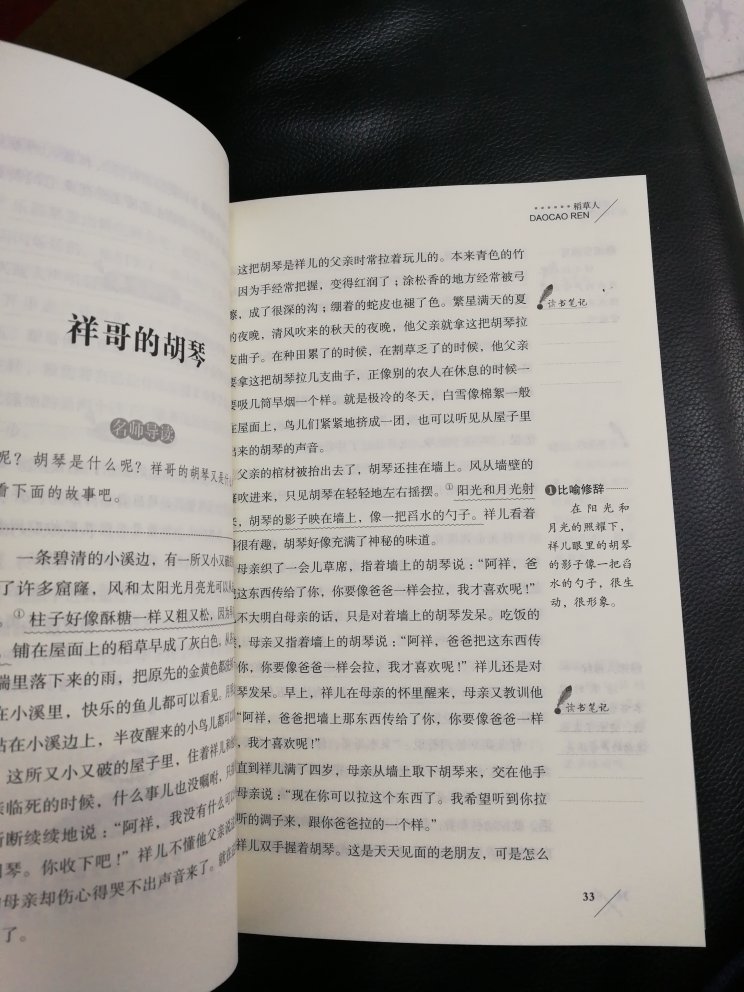 祥哥的胡琴
名师导读
呢？胡琴是什么呢？祥哥的胡琴又是什
看下面的故事吧。
一条碧清的小溪边，有一所又小又破
了许多窟窿，风和太阳光月亮光可以
。①柱子好像酥糖一样又粗又松，因为
，铺在屋面上的稻草早成了灰白色，从
端里落下来的雨，把原先的金黄色都
在小溪里，快乐的鱼儿都可以看见。月
站在小溪边上，半夜醒来的小鸟儿都可以
这所又小又破的屋子里，住着祥儿和
亲临死的时候，什么事儿也没嘱咐，只
断断续续地说：“阿祥，我没有什么可以
胡琴。你收下吧！”祥儿不懂他父亲说
母亲却伤心得哭不出声音来了。就在
了。
稻草人
DAOCAO REN
这把胡琴是祥儿的父亲时常拉着玩儿的。本来青色的竹
因为手经常把握，变得红润了；涂松香的地方经常被弓
擦，成了很深的沟；绷着的蛇皮也褪了色。繁星满天的夏
的夜晚，清风吹来的秋天的夜晚，他父亲就拿这把胡琴拉
支曲子。在种田累了的时候，在割草乏了的时候，他父亲
要拿这把胡琴拉几支曲子，正像别的农人在休息的时候一
要吸几筒旱烟一个样。就是极冷的冬天，白雪像棉絮一般
在屋面上，鸟儿们紧紧地挤成一团，也可以听见从屋子里
出来的胡琴的声音。
父亲的棺材被抬出去了，胡琴还挂在墙上。风从墙壁的
窿吹进来，只见胡琴在轻轻地左右摇摆。①阳光和月光射
，胡琴的影子映在墙上，像一把舀水的勺子。祥儿看着
得很有趣，胡琴好像充满了神秘的味道。
母亲织了一会儿草席，指着墙上的胡琴说：“阿祥，爸
把这东西传给了你，你要像爸爸一样会拉，我才喜欢呢！”
儿不大明白母亲的话，只是对着墙上的胡琴发呆。吃饭的
，母亲又指着墙上的胡琴说：“阿祥，爸爸把这东西传
你，你要像爸爸一样会拉，我才喜欢呢！”祥儿还是对
琴发呆。早上，祥儿在母亲的怀里醒来，母亲又教训他
“阿祥，爸爸把墙上那东西传给了你，你要像爸爸一样
，我才喜欢呢！”
直到祥儿满了四岁，母亲从墙上取下胡琴来，交在他手
母亲说：“现在你可以拉这个东西了。我希望听到你拉
听的调子来，跟你爸爸拉的一个样。”
祥儿双手握着胡琴。这是天天见面的老朋友，可是怎么
读书笔记
❶比喻修辞
在阳光和
月光的照耀下，
祥儿眼里的胡琴
的影子像一把舀
水的勺子，很生
动，很形象。
读书笔记
33